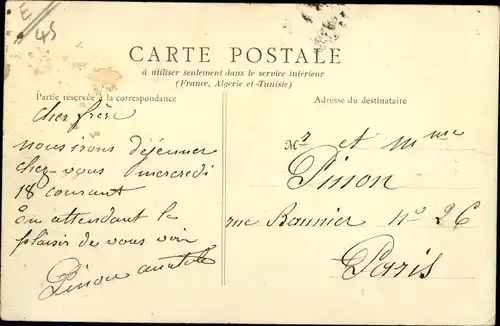 E
45
CARTE POSTALE
à utiliser seulement dans le service intérieur
(France, Algérie et Tunisie)
Partie réservée à la correspondance
Adresse du destinataire
cher frère
nous irons déjeuner
chez vous mercredi
18 courant
En attendant le
plaisir de vous voir
Pinon anatole
Mr et mme
Pinon
rue Baunier no 26
Paris